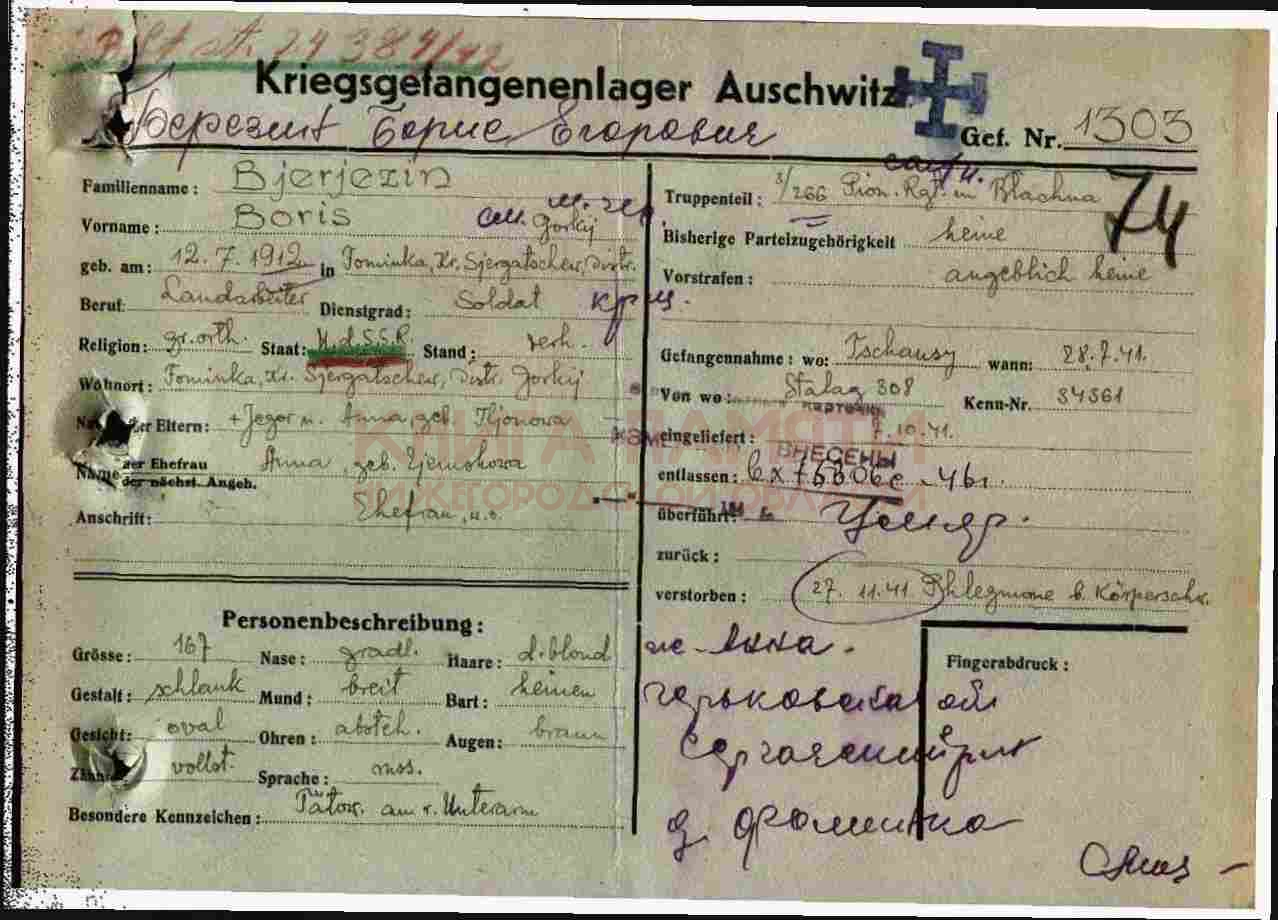 Kriegsgefangenenlager Auschwitz
Березин Борис Егорович
Gef. Nr. 1303
Familienname: Bjerjezin
Vorname: Boris
Gorkij
geb. am: 12.7.1912 in Fominka, Kr. Sjergatschew, Distr.
Beruf: Landarbeiter Dienstgrad: Soldat
Religion: gr. orth. Staat: U.d.S.S.R. Stand: verh.
Wohnort: Fominka, Kr. Sjergatschew, Distr. Gorkij
der Eltern: + Jegor u. Anna, geb.
Name der Ehefrau Anna, geb.
der nächst. Angeh.
Anschrift: Ehefrau, w.o.
Personenbeschreibung:
Grösse: 167 Nase: gradl. Haare: d. blond
Gestalt: schlank Mund: breit Bart: keinen
Gesicht: oval Ohren: absteh. Augen: braun
Zähne: vollst. Sprache: russ.
Besondere Kennzeichen: Tätow. am r. Unterarm
Truppenteil: 3/266 Pion. Rgt. in Blachna
74
Bisherige Parteizugehörigkeit keine
Vorstrafen: angeblich keine
Gefangennahme: wo: Tschausy wann: 28.7.41.
Von wo: Stalag 308 Kenn-Nr. 34361
карточки
eingeliefert: 7.10.41.
ВНЕСЕНЫ
entlassen: Вх 75806с - 46г.
überführt: Умер.
zurück:
verstorben: 27.11.41 Phlegmone b. Körperschw.
Fingerabdruck:
ж-Анна.
Горьковская обл
Сергачский р-н
д. Фоминка
КНИГА ПАМЯТИ
НИЖЕГОРОДСКОЙ ОБЛАСТИ